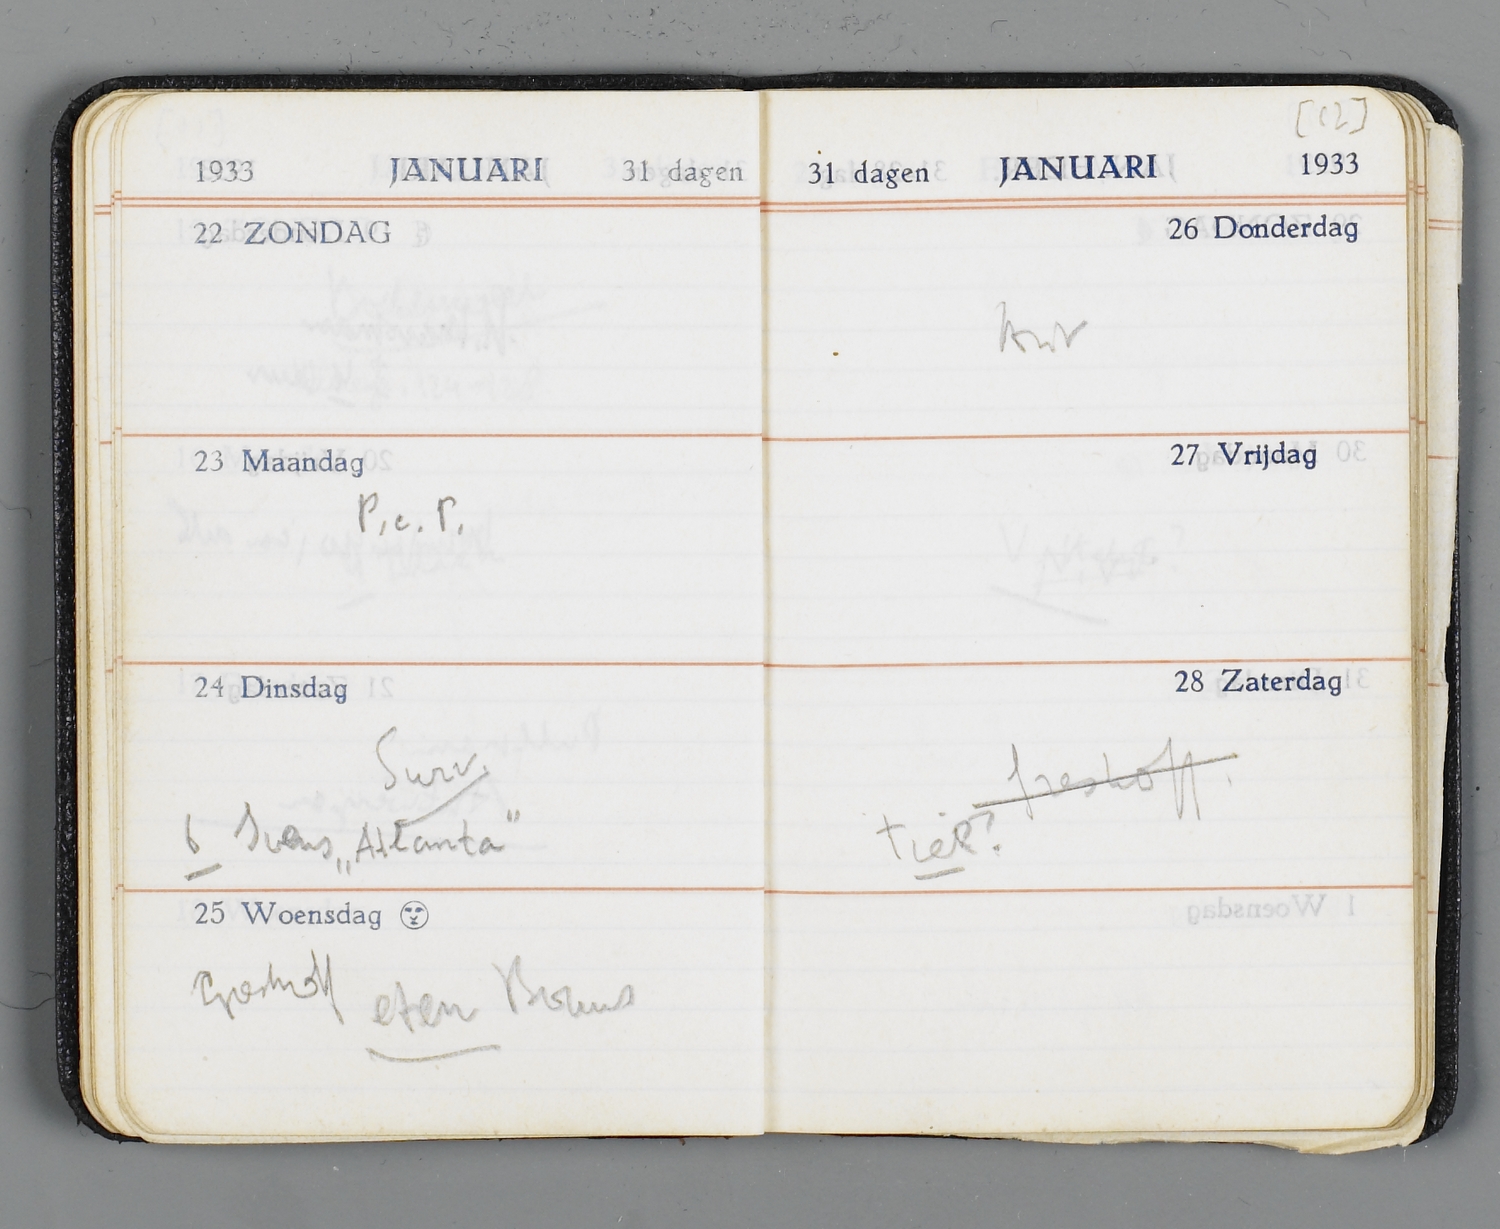 1933 JANUARI 31 dagen
22 ZONDAG
23 Maandag
P.c.P.
24 Dinsdag
Surv.
6 „Atlanta”
25 Woensdag
Greshoff eten
[12]
31 dagen JANUARI 1933
26 Donderdag
27 Vrijdag
28 Zaterdag
Greshoff